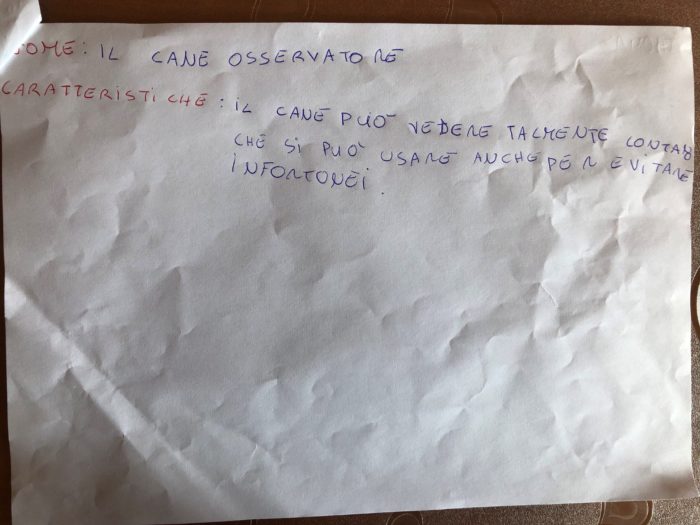 NOME: IL CANE OSSERVATORE
CARATTERISTICHE: IL CANE PUÒ VEDERE TALMENTE
CHE SI PUÒ USARE ANCHE PER EVITARE
INFORTONEI.